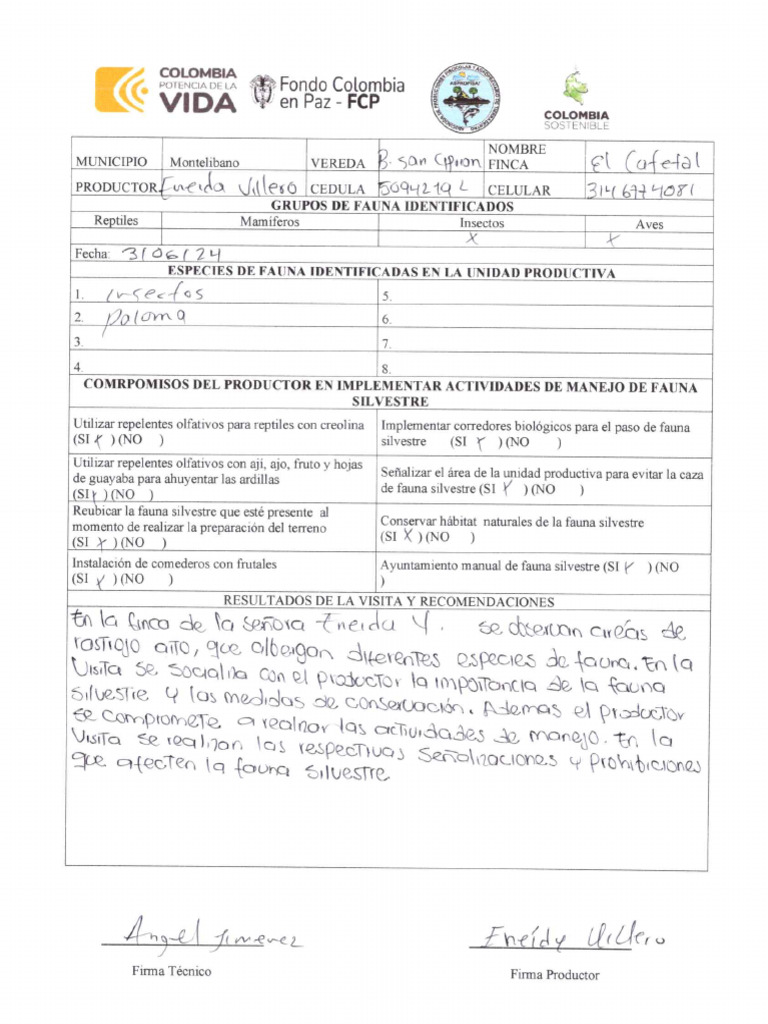 COLOMBIA
POTENCIA DE LA
VIDA
Fondo Colombia
en Paz - FCP
COLOMBIA
SOSTENIBLE
MUNICIPIO Montelibano VEREDA B. San Ciprian NOMBRE FINCA El Cafetal
PRODUCTOR Eneida Villero CEDULA 50942192 CELULAR 3146774081
GRUPOS DE FAUNA IDENTIFICADOS
Reptiles Mamiferos Insectos Aves
X X
Fecha: 3/06/24
ESPECIES DE FAUNA IDENTIFICADAS EN LA UNIDAD PRODUCTIVA
1. insectos 5.
2. paloma 6.
3. 7.
4. 8.
COMRPOMISOS DEL PRODUCTOR EN IMPLEMENTAR ACTIVIDADES DE MANEJO DE FAUNA
SILVESTRE
Utilizar repelentes olfativos para reptiles con creolina
(SI X) (NO )
Implementar corredores biológicos para el paso de fauna
silvestre (SI X ) (NO )
Utilizar repelentes olfativos con aji, ajo, fruto y hojas
de guayaba para ahuyentar las ardillas
(SI X) (NO )
Señalizar el área de la unidad productiva para evitar la caza
de fauna silvestre (SI X ) (NO )
Reubicar la fauna silvestre que esté presente al
momento de realizar la preparación del terreno
(SI X ) (NO )
Conservar hábitat naturales de la fauna silvestre
(SI X ) (NO )
Instalación de comederos con frutales
(SI X ) (NO )
Ayuntamiento manual de fauna silvestre (SI X ) (NO
)
RESULTADOS DE LA VISITA Y RECOMENDACIONES
En la finca de la señora Eneida V. se observan areás de
rastrojo alto, que albergan diferentes especies de fauna. En la
Visita se socializa con el productor la importancia de la fauna
silvestre y las medidas de conservación. Ademas el productor
se compromete a realizar las actividades de manejo. En la
Visita se realizan las respectivas señalizaciones y prohibiciones
que afecten la fauna silvestre
Angel Jimenez
Firma Técnico
Eneidy Villero
Firma Productor